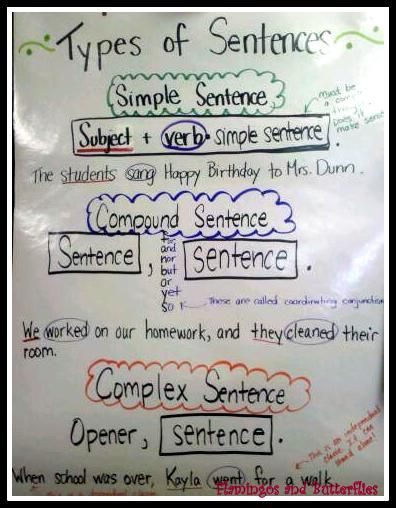 Types of Sentences
Simple Sentence
must be
a
Subject + verb = simple sentence.
does it
make sense
The students sang Happy Birthday to Mrs. Dunn.
Compound Sentence
Sentence, for and nor but or yet so sentence.
These are called coordinating conjunction
We worked on our homework, and they cleaned their
room.
Complex Sentence
Opener, sentence.
This is an independent
clause. It can
stand alone!
When school was over, Kayla went for a walk.
Flamingos and Butterflies